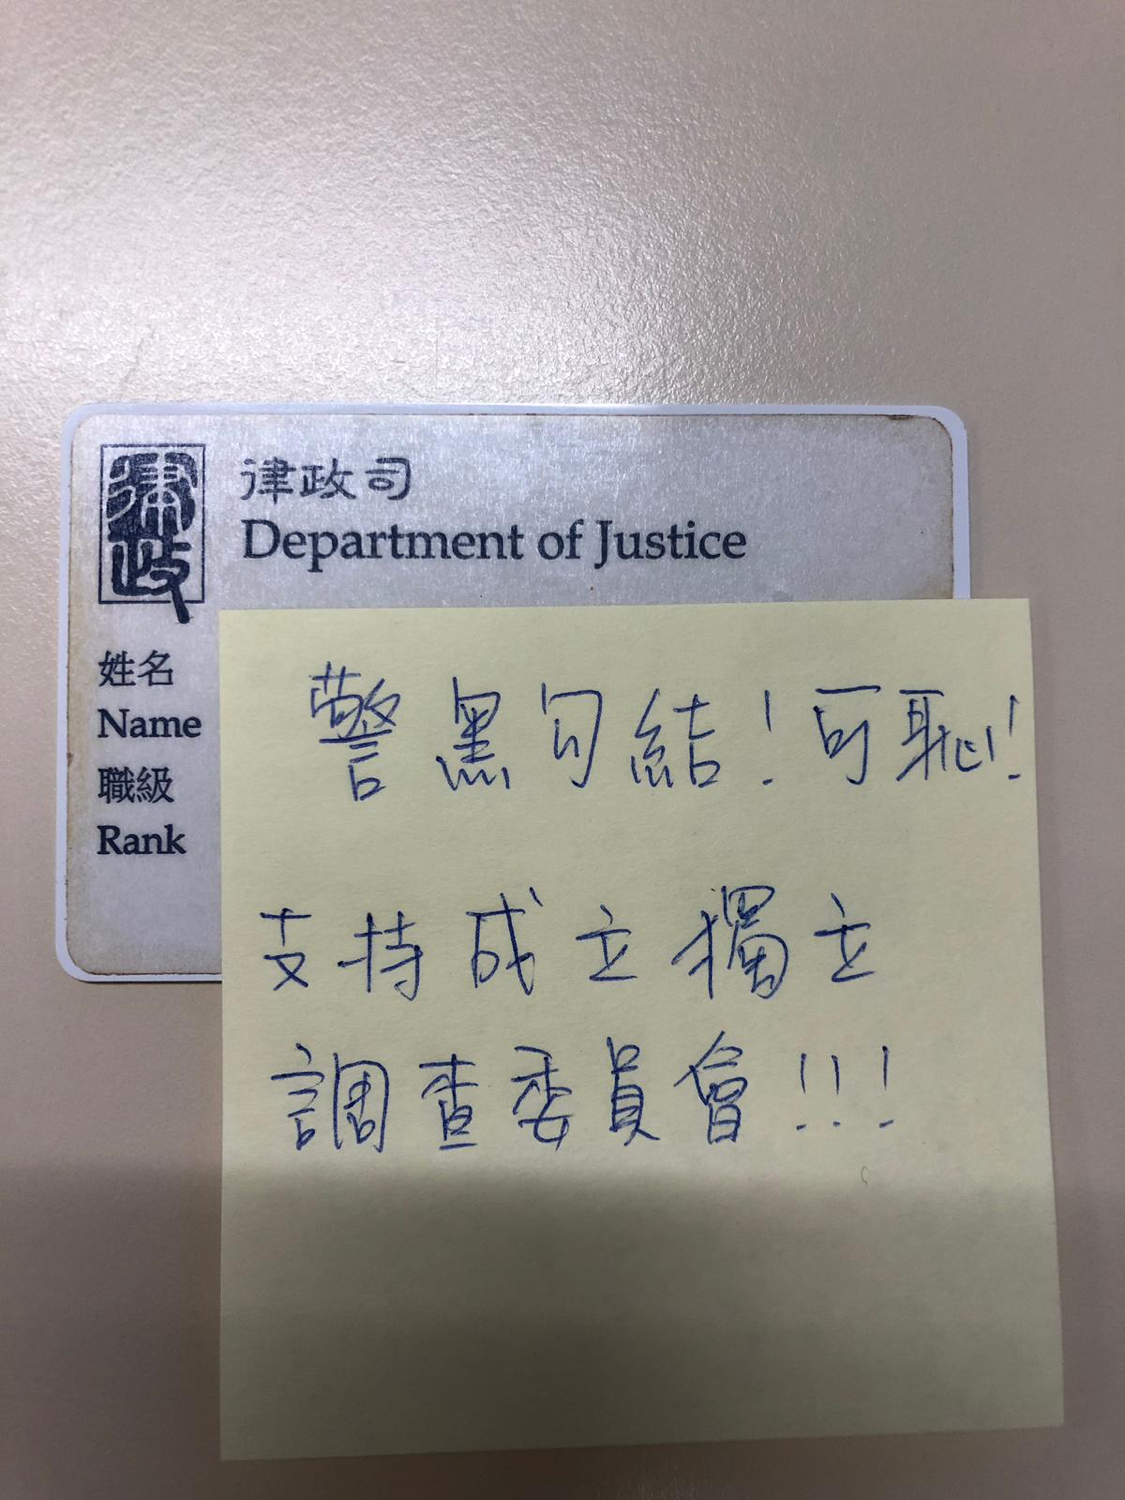 律政
律政司
Department of Justice
姓名
Name
職級
Rank
警黑勾結！可恥！
支持成立獨立
調查委員會！！！